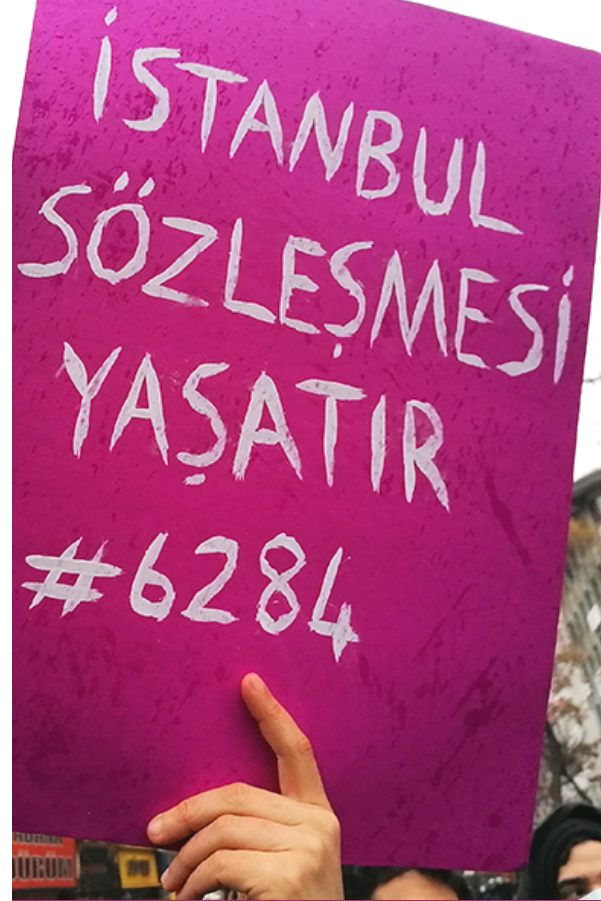 İSTANBUL
SÖZLEŞMESİ
YAŞATIR
#6284